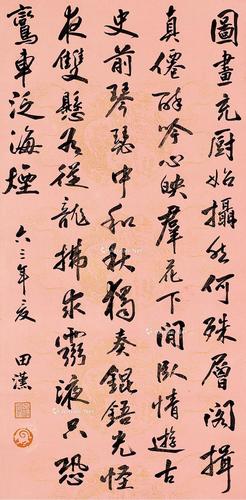 圖畫充厨始攝生何殊層閣揖
真僊醉吟心映羣花下閒臥情遊古
史前琴瑟中和秋獨奏錕鋙光怪
夜雙懸若從龍拂求靈液只恐
鸞車泛海煙
六三年夏
田漢